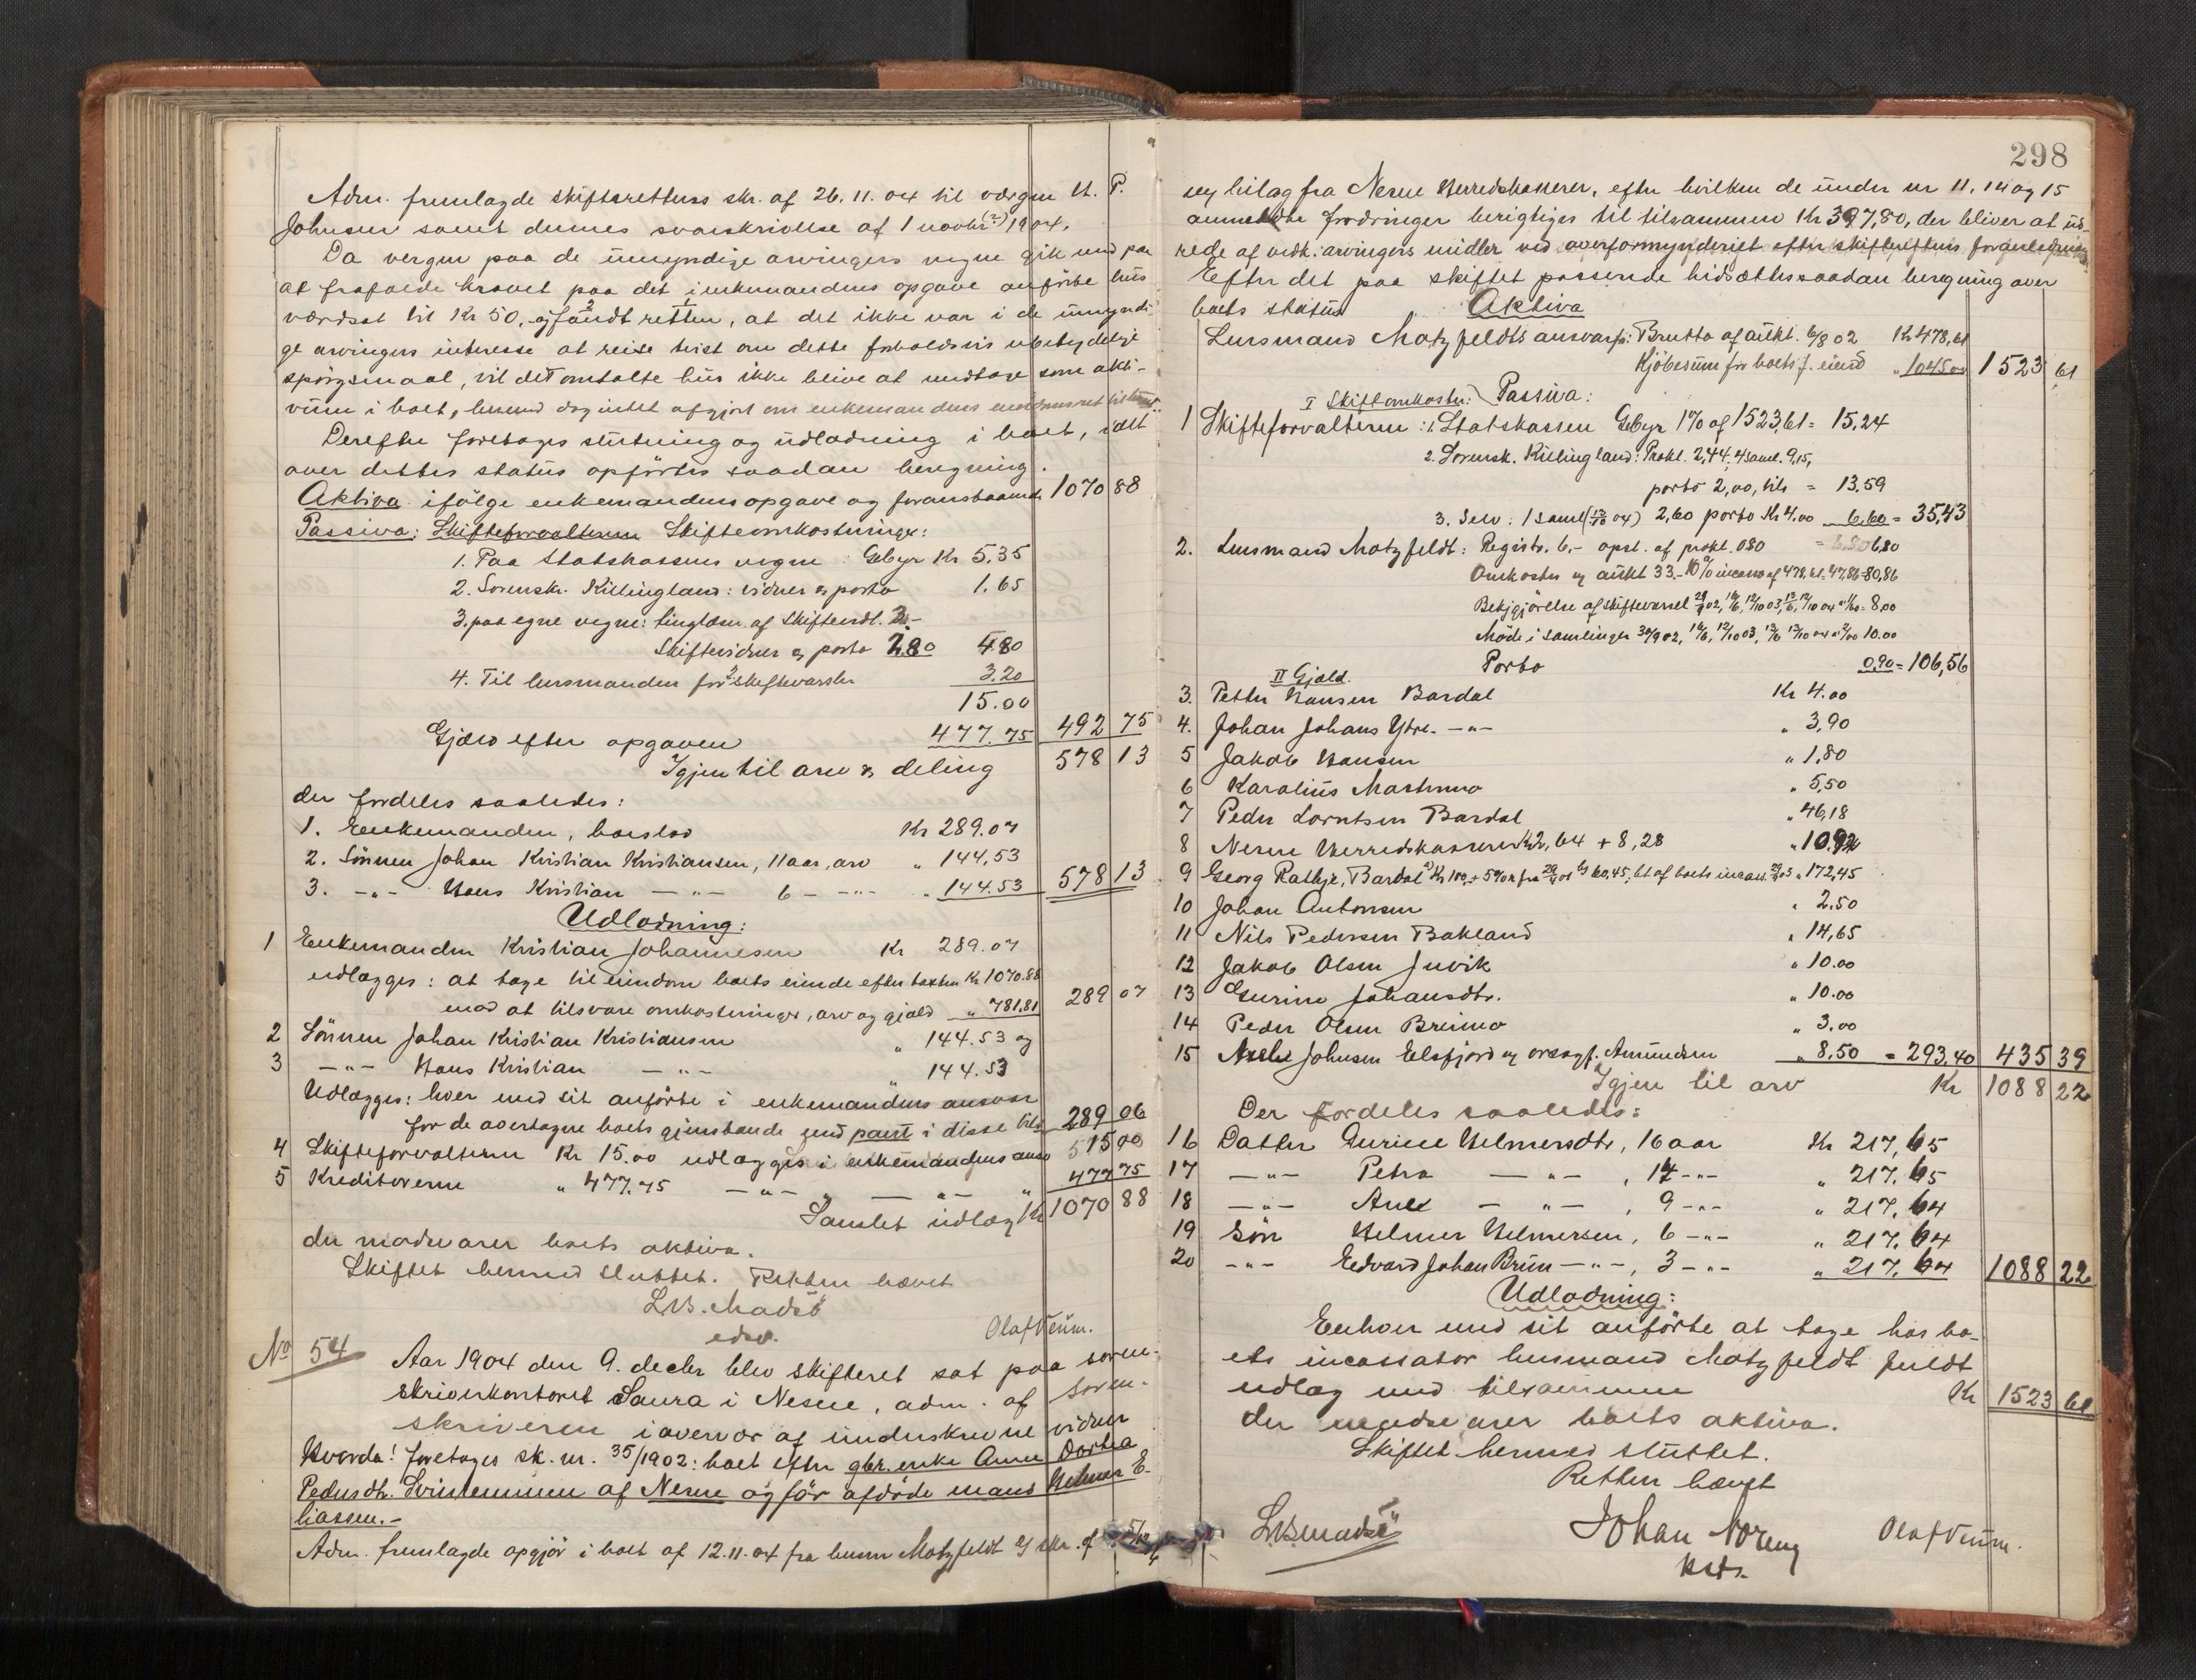 Adm. fremlagde skifterettens skr. af 26.11.04 til værgen H. P.
Johnsen samt dennes svarskrivelse af 1 novbr (?) 1904.
Da vergen paa de umyndige arvingers vegne gik med paa
at frafalde kravet paa det i enkemandens opgave anførte hus
værdsat til Kr 50, og fandt retten, at det ikke var i de umyndi-
ge arvingers interesse at reise tvist om dette forholdsvis ubetydelige
spørgsmaal, vil det omtalte hus ikke blive at medtage som akti-
vum i boet, hermed dog intet afgjort om enkemandens eiendomsret til huset.
Derefter foretages slutning og udlodning i boet, idet
over dettes status opførtes saadan beregning.
Aktiva ifølge enkemandens opgave og foranstaaende 1070 88
Passiva: Skifteforvalteren Skifteomkostninger:
1. Paa Statskassens vegne: Gebyr Kr 5,35
2. Sorenskr. Killingland: vidner & porto 1.65
3. paa egne vegne: tinglæsn. af Skifteudl. 2.-
Skiftevidner & porto 2.80 4.80
4. Til lensmanden for 2 skiftevarsler 3.20
15.00
Gjæld efter opgaven 477.75 492 75
Igjen til arv & deling 578 13
der fordeles saaledes:
1. Enkemanden, boeslod Kr 289.07
2. Sønnen Johan Kristian Kristiansen, 11 aar, arv " 144,53
3. -"- Hans Kristian -"- 6 -"- " 144.53 578 13
Udlodning:
1 Enkemanden Kristian Johannesen Kr 289.07
udlægges: at tage til eiendom boets eiende efter taxten Kr 1070.88
mod at tilsvare omkostninger, arv og gjæld " 781.81 289 07
2 Sønnen Johan Kristian Kristiansen " 144.53 og
3 -"- Hans Kristian -"- " 144.53
Udlægges: hver med sit anførte i enkemandens ansvar
for de overtagne boets gjenstande med pant i disse tils. 289 06
4 Skifteforvalteren Kr 15.00 udlægges i enkemandens ansv 15 00
5 Kreditorerne " 477.75 -"- " -"- " 477 75
Samlet udlæg Kr 1070 88
der modsvarer boets aktiva.
Skiftet hermed sluttet. Retten hævet
L.B. Madsö
edsv. Olaf Veum.
No 54 Aar 1904 den 9. decbr blev skifteret sat paa soren-
skriverkontoret Saura i Nesne, adm. af soren-
skriveren i overvær af underskrevne vidner
Hvorda! foretages sk. nr. 35/1902: boet efter gbr. enke Anne Dorthea
Pedersdtr. Svinlemmen af Nesne og før afdøde mand Helmer E-
liassen.-
Adm. fremlagde opgjør i boet af 12.11.04 fra lensm Motzfeldt og skr. af
298
og bilag fra Nesne Herredskasserer, efter hvilken de under nr 11, 14 og 15
anmeldte fordringer berigtiges til tilsammen Kr 397,80, der bliver at ud-
rede af vedk. arvingers midler ved overformynderiet efter skifterettens foranledning
Efter det paa skiftet passerede hidsættes saadan beregning over
boets status Aktiva
Lensmand Motzfeldts ansvar f: Brutto af aukt. 6/8 02 Kr 478,61
Kjøbesum for boets f. eiend " 1045,00 1523 61
I Skifteomkostn: Passiva:
1 Skifteforvalteren: 1. Statskassen Gebyr 1% af 1523,61 = 15,24
2. Sorensk. Killingland: Prokl. 2,44, 4 saml. 9,15,
porto 2,00, tils = 13,59
3. Selv: 1 saml (13/10 04) 2,60 porto Kr 4.00 6,60 = 35,43
2. Lensmand Motzfeldt: Registr. 6.- opsl. af prokl. 0.80 = 6,80
Omkostn og aukt 33.- 10% incasso af 478,61 = 47,86 = 80,86
Bekjgjørelse af skiftevarsel = 8,00
Møde i samlinger 10.00
Porto 0,90 = 106,56
II Gjæld.
3. Petter Hansen Bardal Kr 4.00
4. Johan Johans Ytre. -"- " 3,90
5 Jakob Hansen " 1,80
6 Karolius Mastermo " 5,50
7 Peder Lorntsen Bardal " 46,18
8 Nesne Herredskasserer Kr 2,64 + 8,28 " 10.92
9 Georg Rathje, Bardal Kr 100,+ 5% r fra " 172,45
10 Johan Antonsen " 2.50
11 Nils Pedersen Bakland " 14,65
12 Jakob Olsen Juvik " 10.00
13 Gurine Johansdtr. " 10.00
14 Peder Olsen Breimo " 3.00
15 Johnsen Elsfjord og orsagf. Amundsen " 8,50 = 293,40 435 39
Igjen til arv Kr 1088 22
Der fordeles saaledes:
16 Datter Gurine Helmersdtr, 16 aar Kr 217,65
17 -"- Petra -"- , 14 -"- " 217,65
18 -"- Anne -"- , 9 -"- " 217,64
19 Søn Helmer Helmersen, 6 -"- " 217,64
20 -"- Edvard Johan Brun -"-, 3 -"- " 217,64 1088 22
Udlodning:
Enhver med sit anførte at tage hos bo-
ets incassator lensmand Motzfeldt fuldt
udlæg med tilsammen Kr 1523 61
der modsvarer boets aktiva.
Skiftet hermed sluttet.
Retten hævet
L.B. Madsö Johan Noreng Olaf Veum.